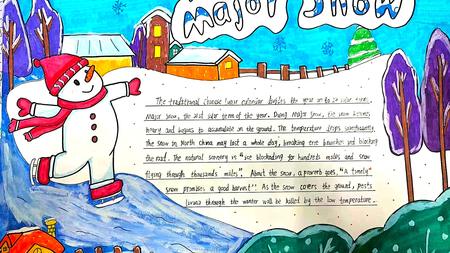 Major Snow
The traditional Chinese lunar calendar divides the year into 24 solar terms.
Major Snow, the 21st solar term of the year. During Major Snow, the snow becomes
heavy and begins to accumulate on the ground. The temperature drops significantly.
The snow in North China may last a whole day, breaking tree branches and blocking
the road. The natural scenery is "ice blockading for hundreds miles and snow
flying through thousands miles". About the snow, a proverb goes, "A timely
snow promises a good harvest". As the snow covers the ground, pests
living through the winter will be killed by the low temperature.